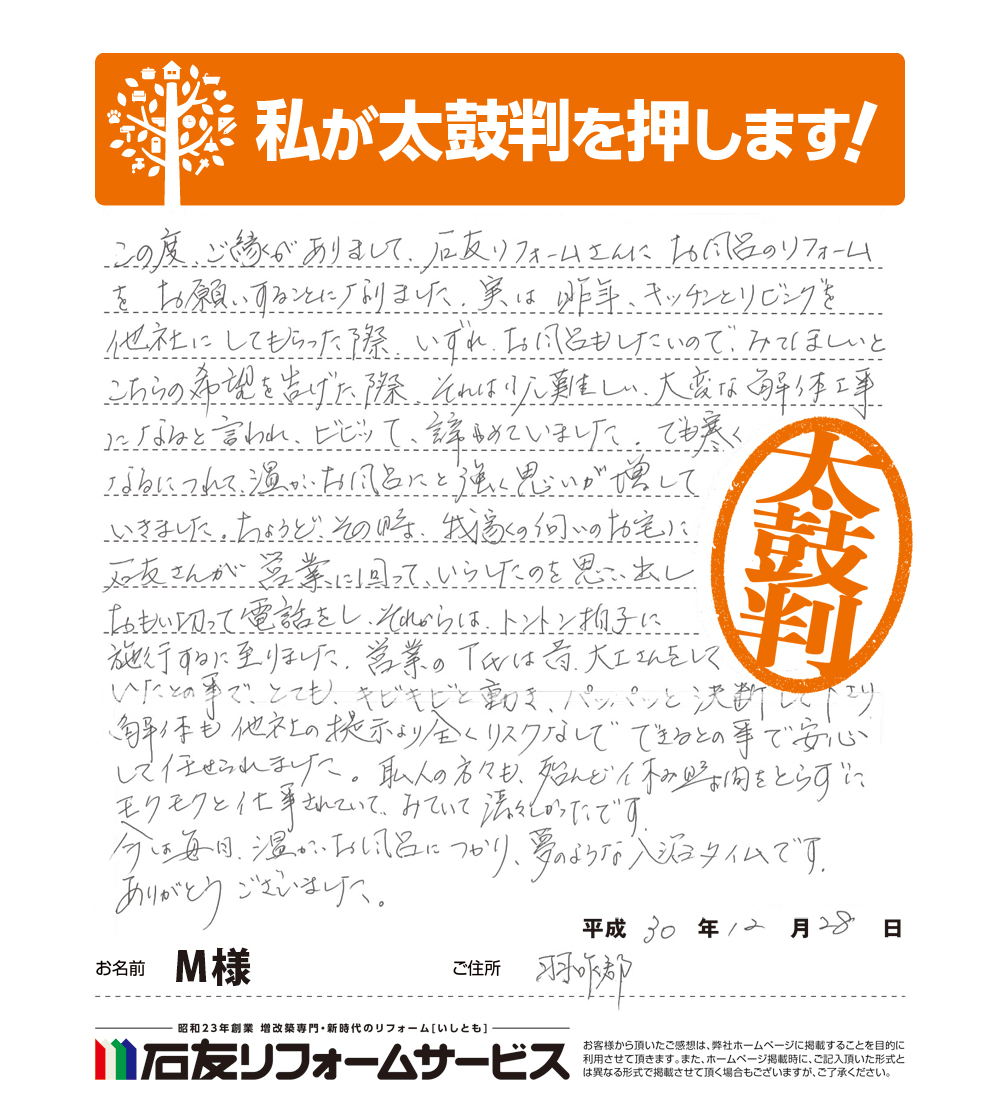 私が太鼓判を押します!
この度、ご縁がありまして、石友リフォームさんに お風呂のリフォーム
を お願いすることになりました。実は 昨年、キッチンとリビングを
他社に してもらった際、いずれ、お風呂もしたいので、みてほしいと
こちらの希望を告げた際、それは少し難しい、大変な解体工事
になると言われ、ビビッて、諦めていました。でも寒く
なるにつれて、温かいお風呂にと強く思いが増して
いきました。ちょうど、その時、我家の向いのお宅に
石友さんが 営業に回って、いらしたのを思い出し
おもい切って電話をし、それからは、トントン拍子に
施行するに至りました。営業の T氏は昔、大工さんをして
いたとの事で、とても、キビキビと動き、パッパッと決断して下さり
解体も他社の提示より全くリスクなしで できるとの事で安心
して任せられました。職人の方々も、殆んど休み時間をとらずに
モクモクと仕事されていて、みていて清々しかったです。
今は毎日、温かいお風呂につかり、夢のような入浴タイムです。
ありがとう ございました。
太鼓判
平成 30 年 12 月 28 日
お名前 M様 ご住所 羽咋郡
昭和23年創業 増改築専門・新時代のリフォーム[いしとも]
石友リフォームサービス
お客様から頂いたご感想は、弊社ホームページに掲載することを目的に
利用させて頂きます。また、ホームページ掲載時に、ご記入頂いた形式と
は異なる形式で掲載させて頂く場合もございますが、ご了承ください。